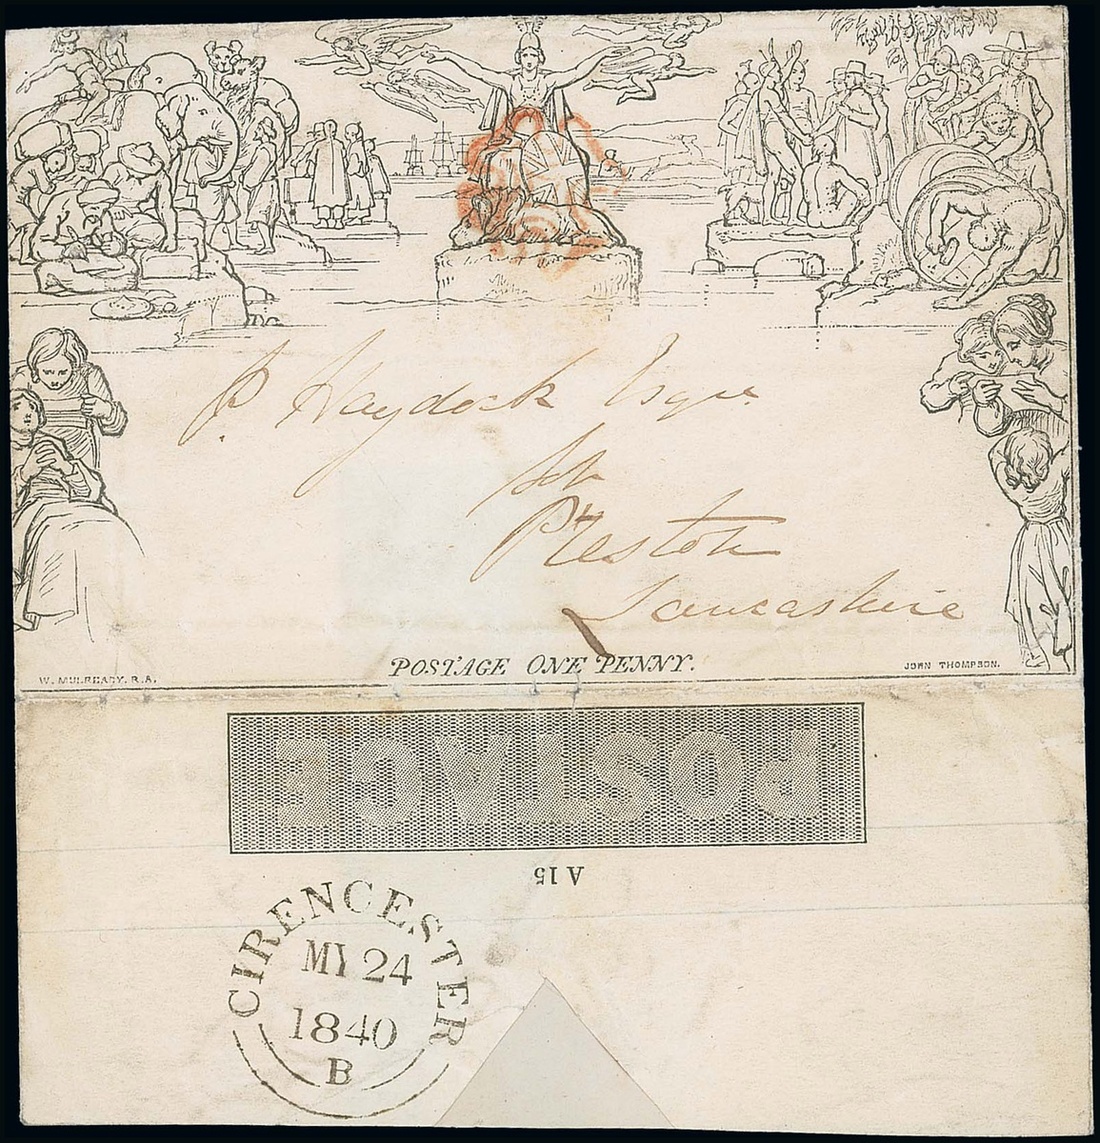 P. Haydock Esqre
Preston
Lancashire
POSTAGE ONE PENNY.
W. MULREADY. R.A.
JOHN THOMPSON.
POSTAGE
A 15
CIRENCESTER
MY 24
1840
B